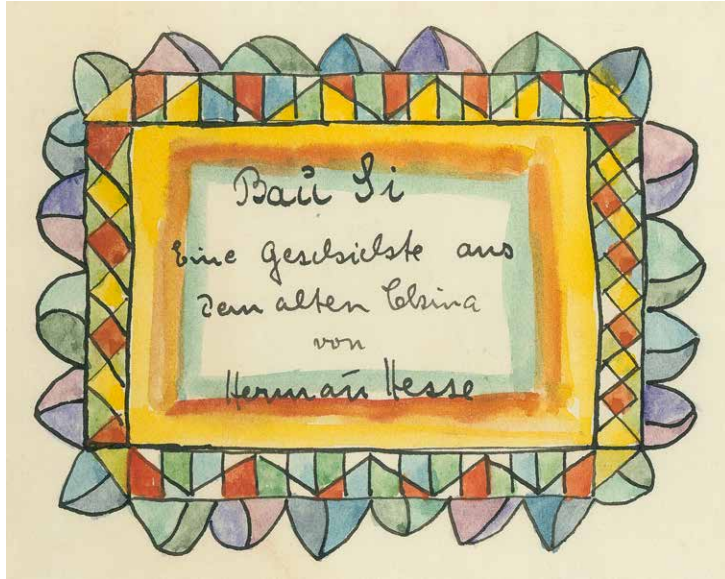 Baū Si
Eine Geschichte aus
dem alten China
von
Herman̄ Hesse